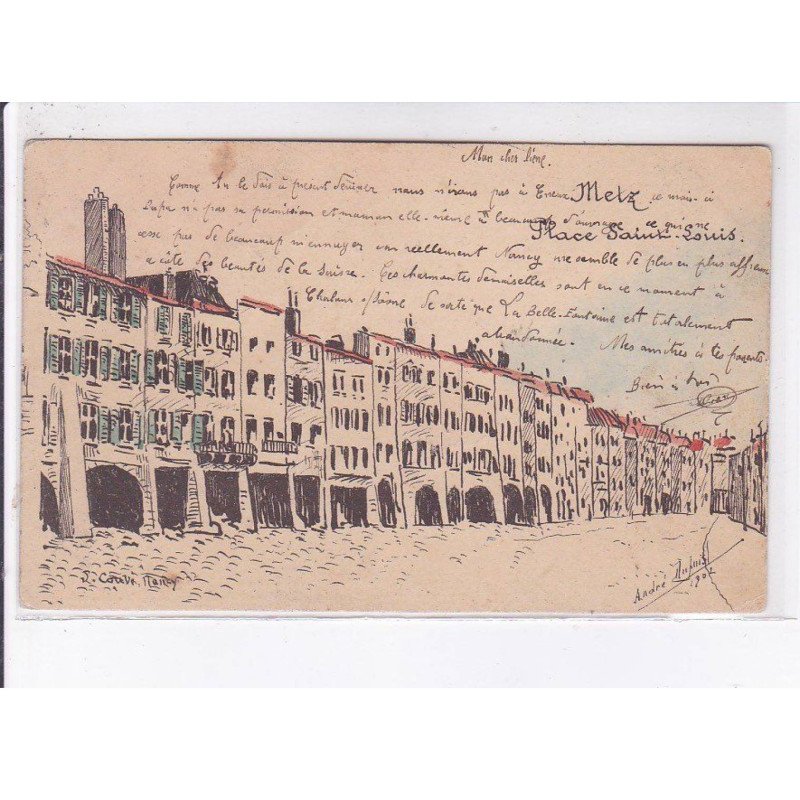 Mon cher
Comme tu le sais à présent nous n'irons pas à Metz ce mois-ci
papa n'a pas sa permission et maman elle-même a beaucoup d'ouvrage ce qui ne
Place Saint-Louis.
pas de beaucoup m'ennuyer car réellement Nancy me semble de plus en plus affreux
à côté des beautés de la Suisse. Ces charmantes demoiselles sont en ce moment à
Chalons s/Saône de sorte que La Belle-Fontaine est totalement
abandonnée. Mes amitiés à tes parents.
Bien à toi
Nancy
André Dupuis
1902